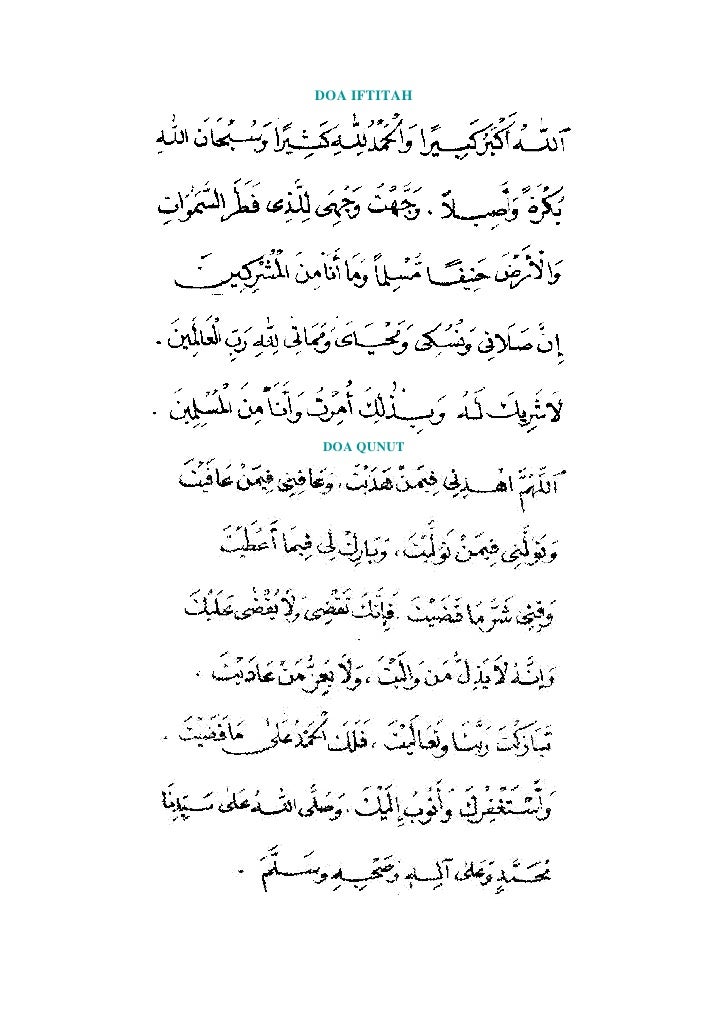 DOA IFTITAH
اَللهُ أَكْبَرُ كَبِيْرًا وَالْحَمْدُ لِلّهِ كَثِيْرًا وَسُبْحَانَ اللهِ
بُكْرَةً وَأَصِيلاً . وَجَّهْتُ وَجْهِىَ لِلَّذِى فَطَرَ السَّمٰوَاتِ
وَالْأَرْضَ حَنِيفًا مُسْلِماً وَمَا أَنَا مِنَ الْمُشْرِكِينَ
إِنَّ صَلَاتِى وَنُسُكِى وَمَحْيَاىَ وَمَمَاتِى لِلّهِ رَبِّ الْعَالَمِينَ .
لَا شَرِيكَ لَهُ وَبِذٰلِكَ أُمِرْتُ وَأَنَا مِنَ الْمُسْلِمِينَ .
DOA QUNUT
اَللّٰهُمَّ اهْدِنِى فِيمَنْ هَدَيْتَ ، وَعَافِنِى فِيمَنْ عَافَيْتَ
وَتَوَلَّنِى فِيمَنْ تَوَلَّيْتَ ، وَبَارِكْ لِى فِيمَا أَعْطَيْتَ
وَقِنِى شَرَّ مَا قَضَيْتَ . فَإِنَّكَ تَقْضِى وَلَا يُقْضٰى عَلَيْكَ
وَإِنَّهُ لَا يَذِلُّ مَنْ وَالَيْتَ ، وَلَا يَعِزُّ مَنْ عَادَيْتَ .
تَبَارَكْتَ رَبَّنَا وَتَعَالَيْتَ ، فَلَكَ الْحَمْدُ عَلٰى مَا قَضَيْتَ .
وَأَسْتَغْفِرُكَ وَأَتُوبُ إِلَيْكَ . وَصَلَّى اللهُ عَلٰى سَيِّدِنَا
مُحَمَّدٍ وَعَلٰى آلِهِ وَصَحْبِهِ وَسَلَّمَ .